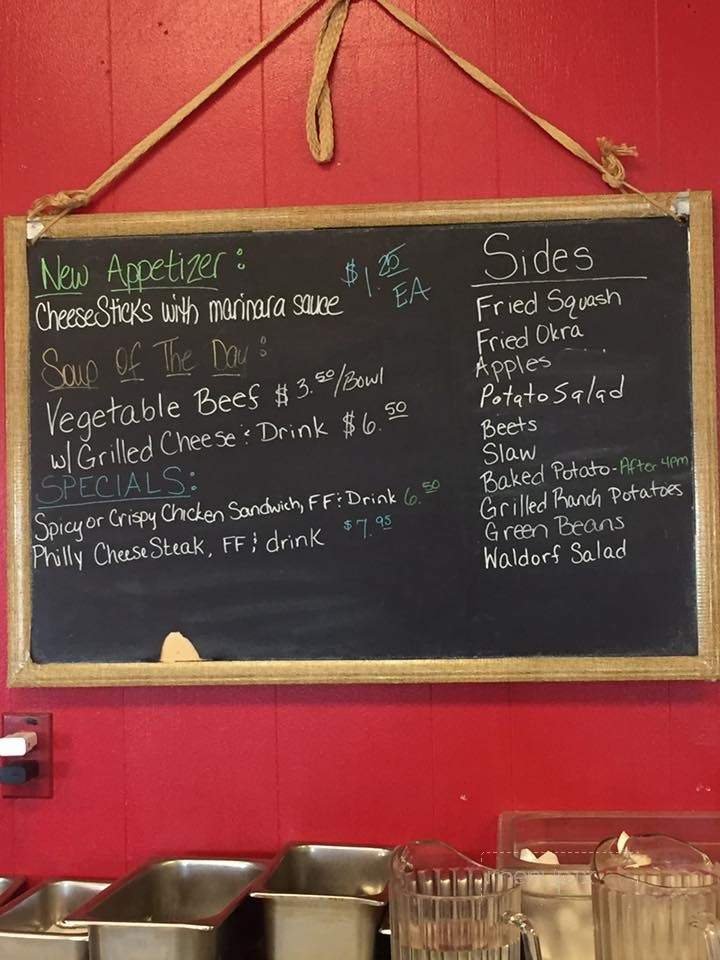 New Appetizer:
CheeseSticks with marinara sauce $1.25 EA
Soup of The Day:
Vegetable Beef $3.50/Bowl
w/ Grilled Cheese & Drink $6.50
SPECIALS:
Spicy or Crispy Chicken Sandwich, FF & Drink 6.50
Philly Cheese Steak, FF & drink $7.95
Sides
Fried Squash
Fried Okra
Apples
Potato Salad
Beets
Slaw
Baked Potato - After 4pm
Grilled Ranch Potatoes
Green Beans
Waldorf Salad